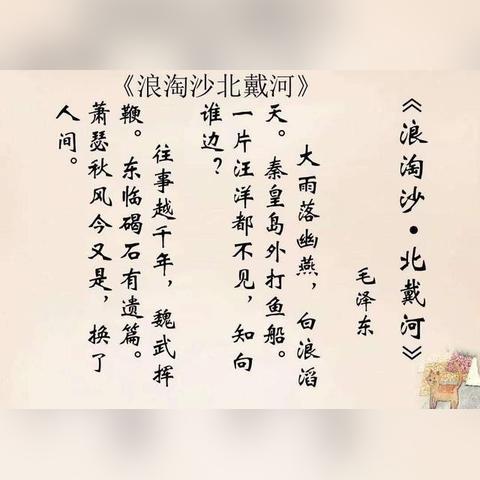 《浪淘沙北戴河》
《浪淘沙•北戴河》
毛泽东
大雨落幽燕，白浪滔
天。秦皇岛外打鱼船。
一片汪洋都不见，知向
谁边？
往事越千年，魏武挥
鞭。东临碣石有遗篇。
萧瑟秋风今又是，换了
人间。